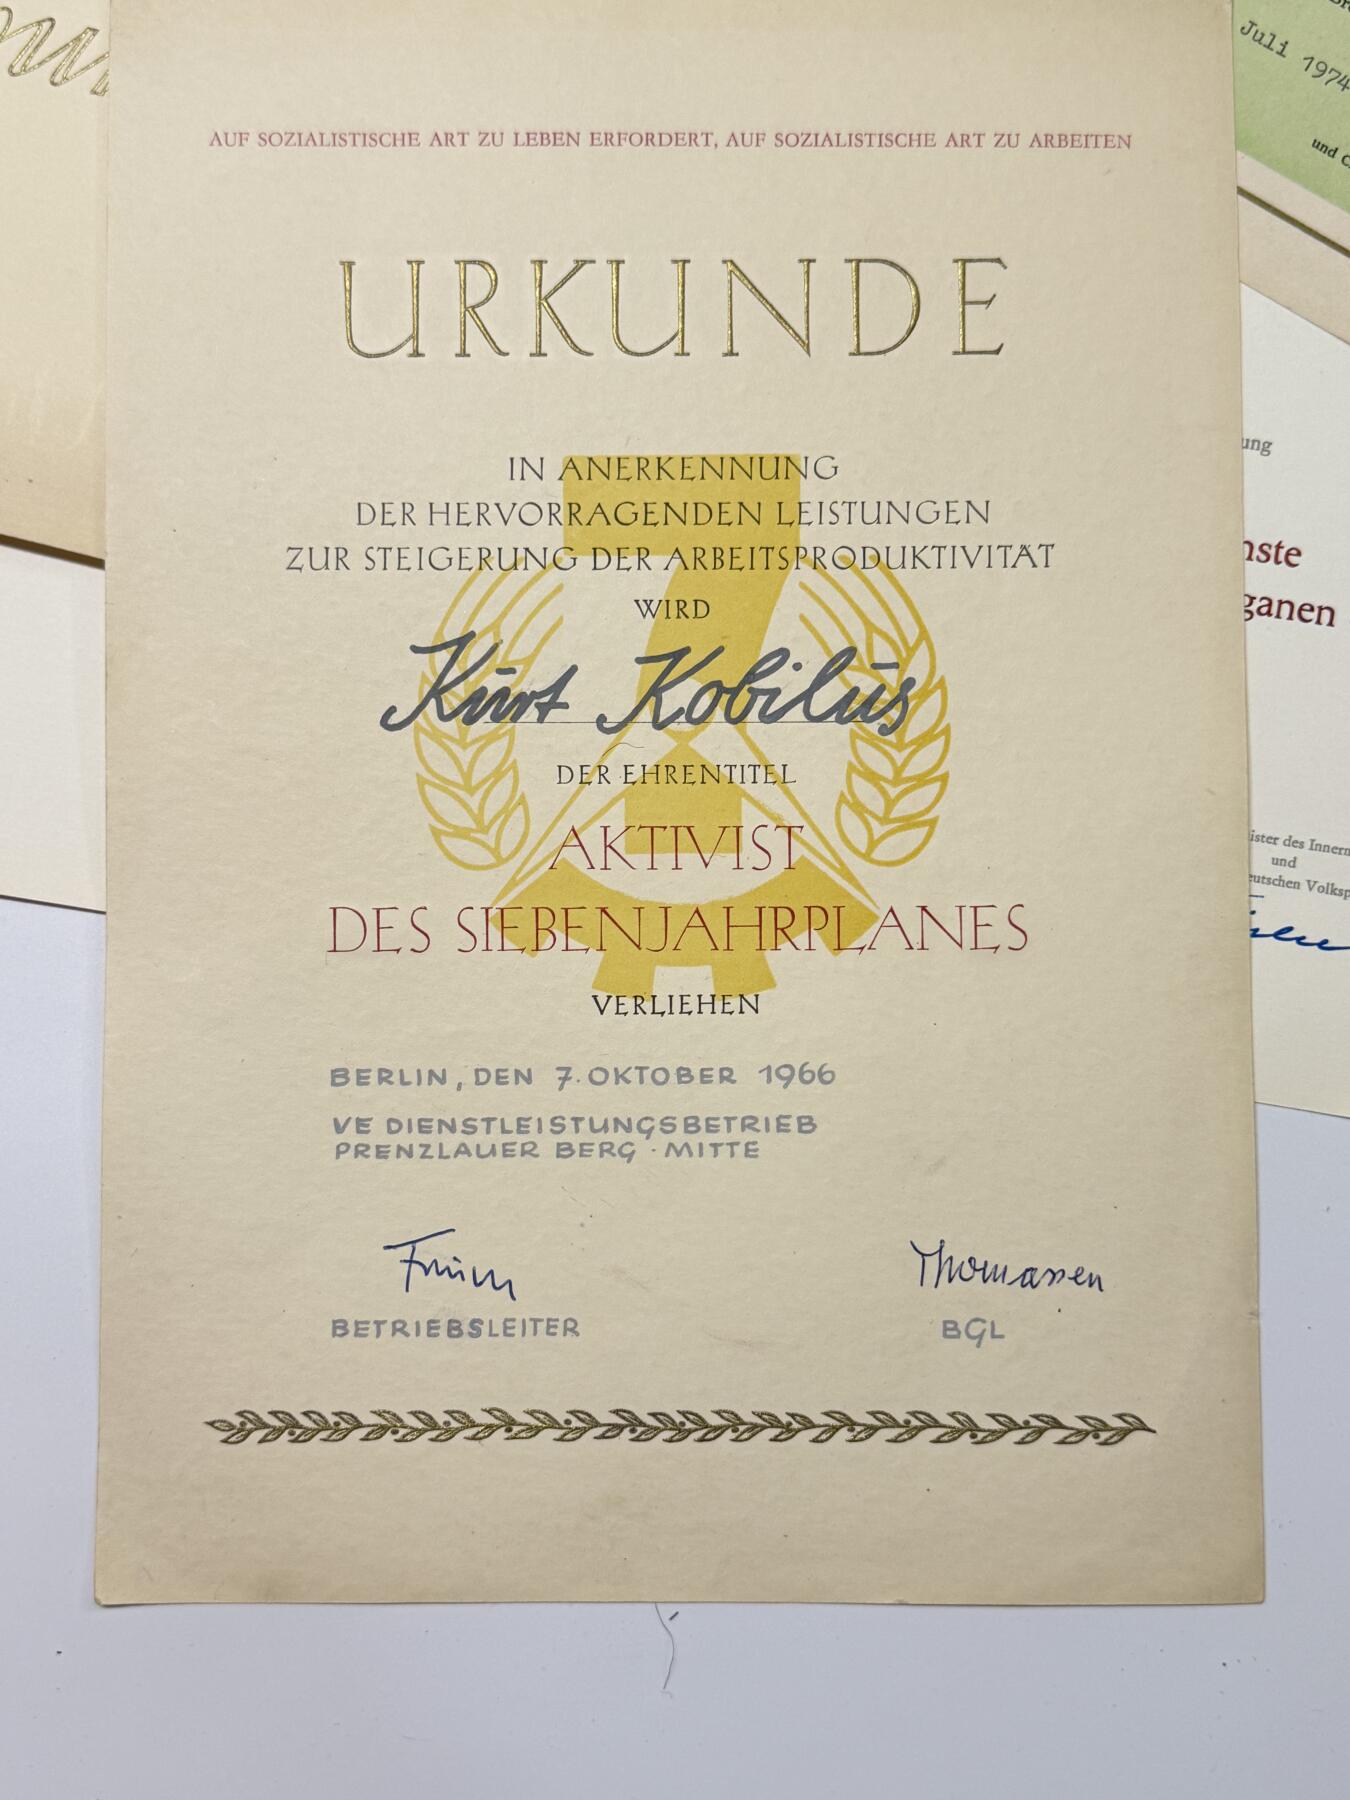 AUF SOZIALISTISCHE ART ZU LEBEN ERFORDERT, AUF SOZIALISTISCHE ART ZU ARBEITEN
URKUNDE
IN ANERKENNUNG
DER HERVORRAGENDEN LEISTUNGEN
ZUR STEIGERUNG DER ARBEITSPRODUKTIVITÄT
WIRD
Kurt Kobilus
DER EHRENTITEL
AKTIVIST
DES SIEBENJAHRPLANES
VERLIEHEN
BERLIN, DEN 7. OKTOBER 1966
VE DIENSTLEISTUNGSBETRIEB
PRENZLAUER BERG · MITTE
Thomassen
BETRIEBSLEITER
BGL
Juli 1974
und
ung
nste
ganen
ister des Innern
und
eutschen Volksp